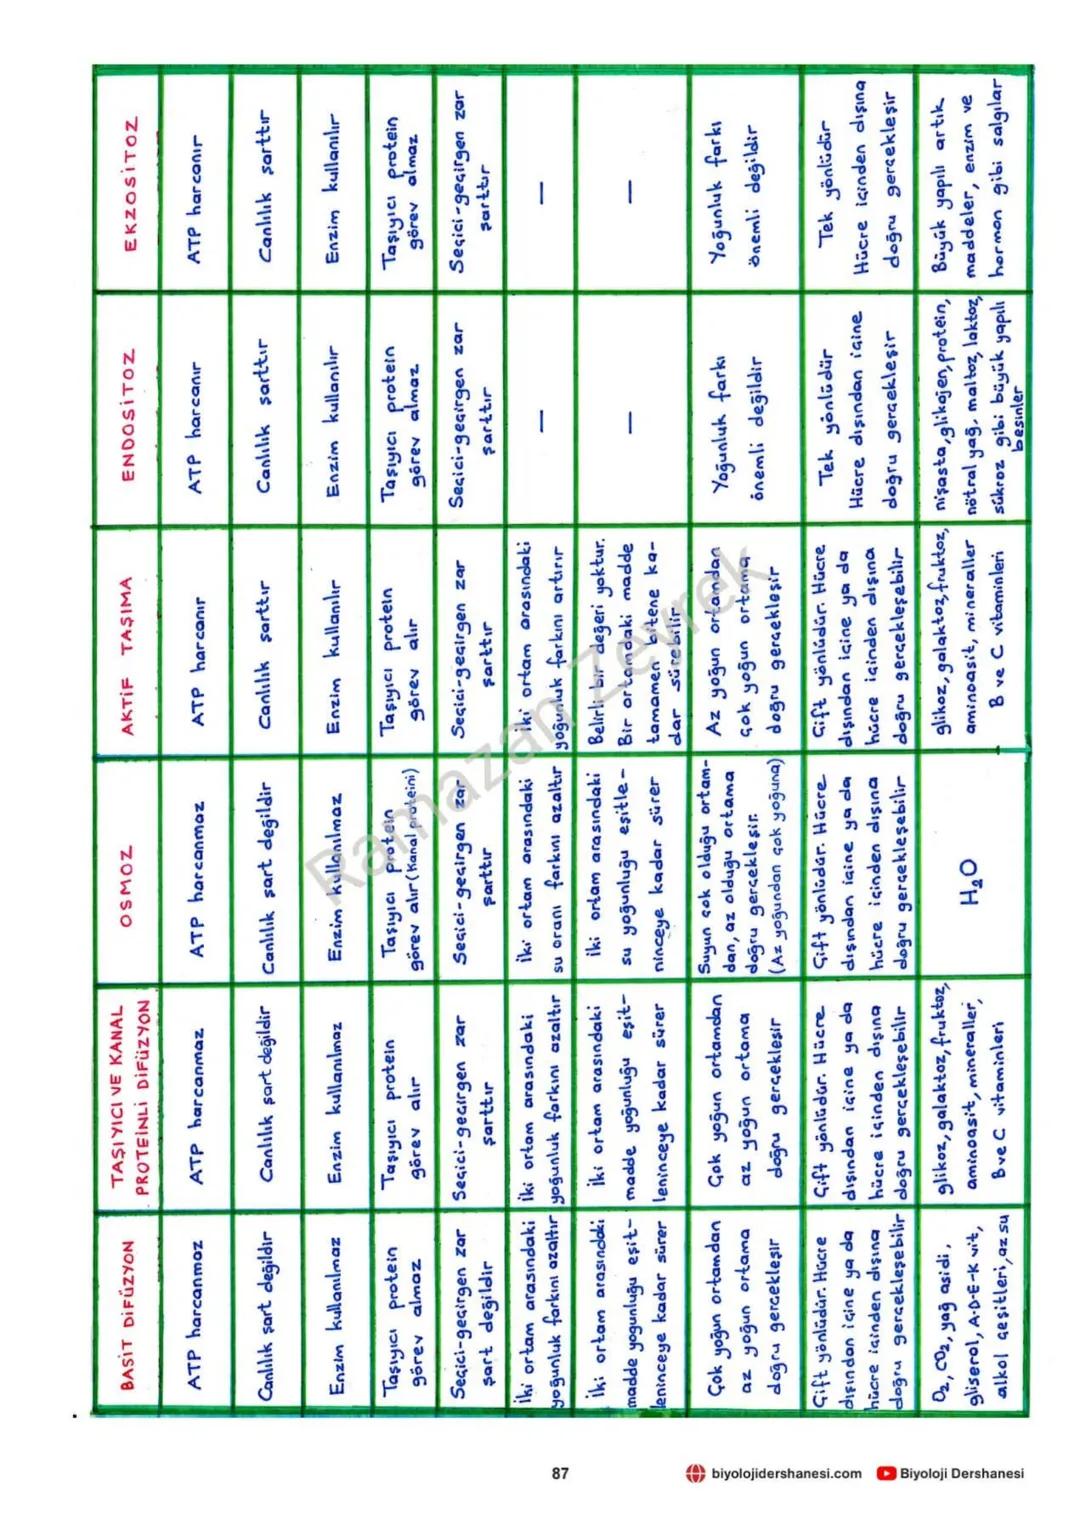 BASİT DİFÜZYON
TAŞIYICI VE KANAL
PROTEİNLİ DİFÜZYON
OSMOZ
AKTİF TAŞIMA
ENDOSİTOZ
EKZOSİTOZ
ATP harcanmaz
ATP harcanmaz
ATP harcanmaz
ATP harcanır
ATP harcanır
ATP harcanır
Canlılık şart değildir
Canlılık şart değildir
Canlılık şart değildir
Canlılık şarttır
Canlılık şarttır
Canlılık şarttır
Enzim kullanılmaz
Enzim kullanılmaz
Enzim kullanılmaz
Enzim kullanılır
Enzim kullanılır
Enzim kullanılır
Taşıyıcı protein
görev almaz
Taşıyıcı protein
görev alır
Taşıyıcı protein
görev alır (Kanal proteini)
Taşıyıcı protein
görev alır
Taşıyıcı protein
görev almaz
Taşıyıcı protein
görev almaz
Seçici-geçirgen zar
şart değildir
Seçici-geçirgen zar
şarttır
Seçici-geçirgen zar
şarttır
Seçici-geçirgen zar
şarttır
Seçici-geçirgen zar
şarttır
Seçici-geçirgen zar
şarttır
İki ortam arasındaki
yoğunluk farkını azaltır
İki ortam arasındaki
yoğunluk farkını azaltır
İki ortam arasındaki
su oranı farkını azaltır
İki ortam arasındaki
yoğunluk farkını artırır
—
—
İki ortam arasındaki
madde yoğunluğu eşit-
leninceye kadar sürer
İki ortam arasındaki
madde yoğunluğu eşit-
leninceye kadar sürer
İki ortam arasındaki
su yoğunluğu eşitle-
ninceye kadar sürer
Belirli bir değeri yoktur.
Bir ortamdaki madde
tamamen bitene ka-
dar sürebilir
—
—
Çok yoğun ortamdan
az yoğun ortama
doğru gerçekleşir
Çok yoğun ortamdan
az yoğun ortama
doğru gerçekleşir
Suyun çok olduğu ortam-
dan, az olduğu ortama
doğru gerçekleşir.
(Az yoğundan çok yoğuna)
Az yoğun ortamdan
çok yoğun ortama
doğru gerçekleşir
Yoğunluk farkı
önemli değildir
Yoğunluk farkı
önemli değildir
Çift yönlüdür. Hücre
dışından içine ya da
hücre içinden dışına
doğru gerçekleşebilir
Çift yönlüdür. Hücre
dışından içine ya da
hücre içinden dışına
doğru gerçekleşebilir
Çift yönlüdür. Hücre
dışından içine ya da
hücre içinden dışına
doğru gerçekleşebilir
Çift yönlüdür. Hücre
dışından içine ya da
hücre içinden dışına
doğru gerçekleşebilir
Tek yönlüdür
Hücre dışından içine
doğru gerçekleşir
Tek yönlüdür
Hücre içinden dışına
doğru gerçekleşir
O₂, CO₂, yağ asidi,
gliserol, A-D-E-K vit,
alkol çeşitleri, az su
glikoz, galaktoz, fruktoz,
aminoasit, mineraller,
B ve C vitaminleri
H₂O
glikoz, galaktoz, fruktoz,
aminoasit, mineraller
B ve C vitaminleri
nişasta, glikojen, protein,
nötral yağ, maltoz, laktoz,
sükroz gibi büyük yapılı
besinler
Büyük yapılı artık
maddeler, enzim ve
hormon gibi salgılar
Ramazan Zeyrek
87
biyolojidershanesi.com
Biyoloji Dershanesi